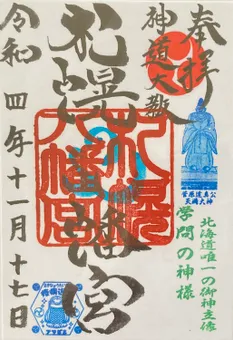 奉拝
神道大教
札幌八幡宮
札幌
八幡宮
菅原道真公
天満大神
北海道唯一の御神立像
学問の神様
令和四年十一月十七日